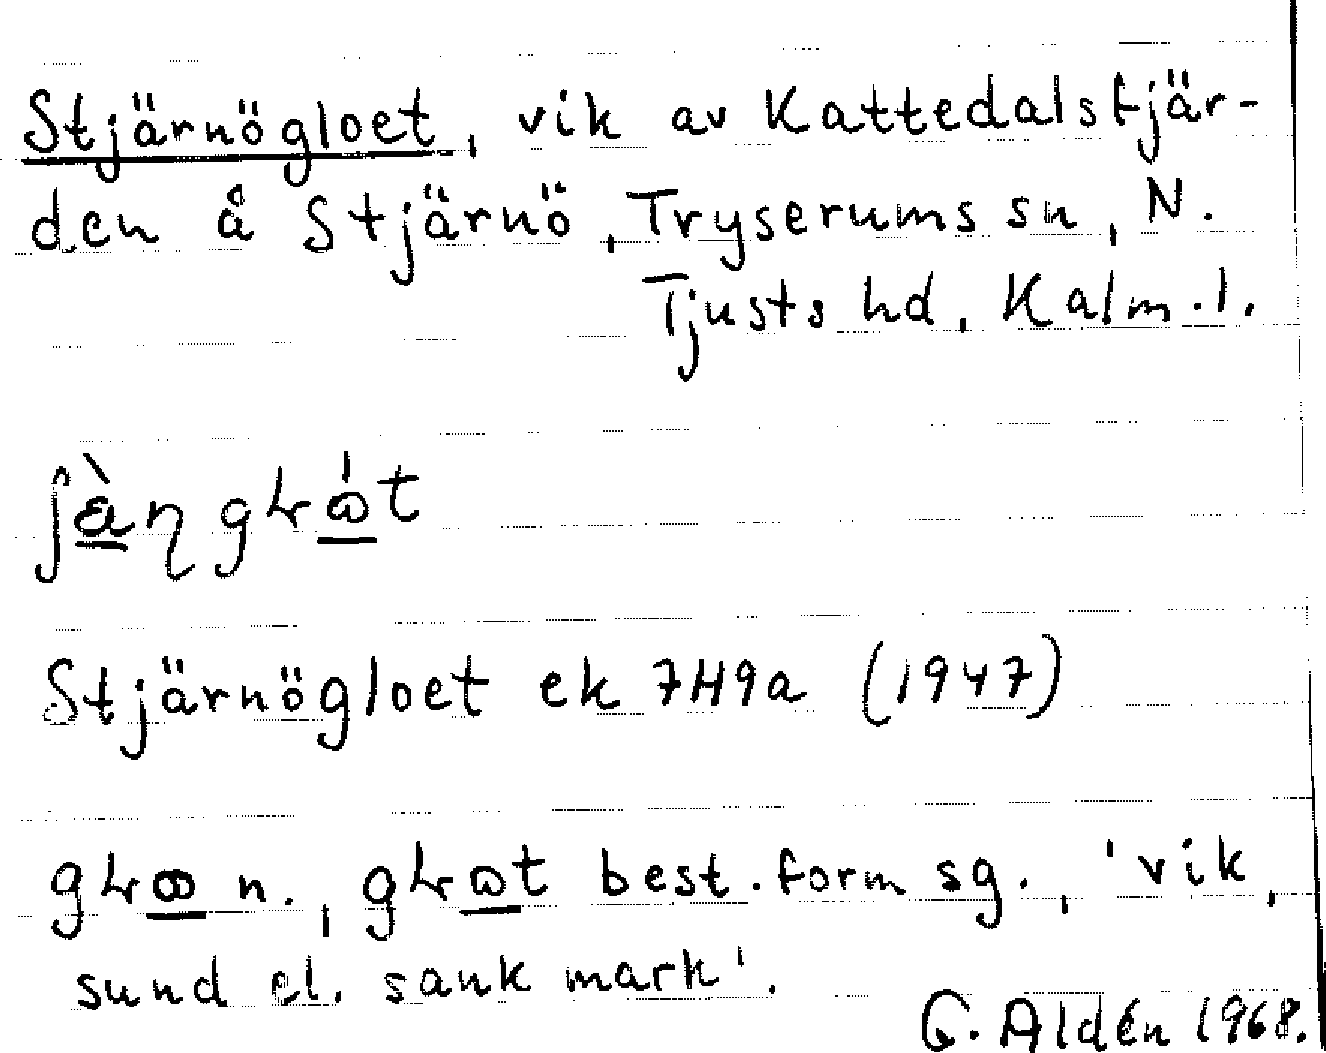 Stjärnögloet, vik av Kattedalsfjär-
den å Stjärnö, Tryserums sn, N.
Tjusts hd, Kalm.l.
Stjärnögloet ek 7H9a (1947)
n., best. form sg., 'vik,
sund el. sank mark'.
G. Aldén 1968.